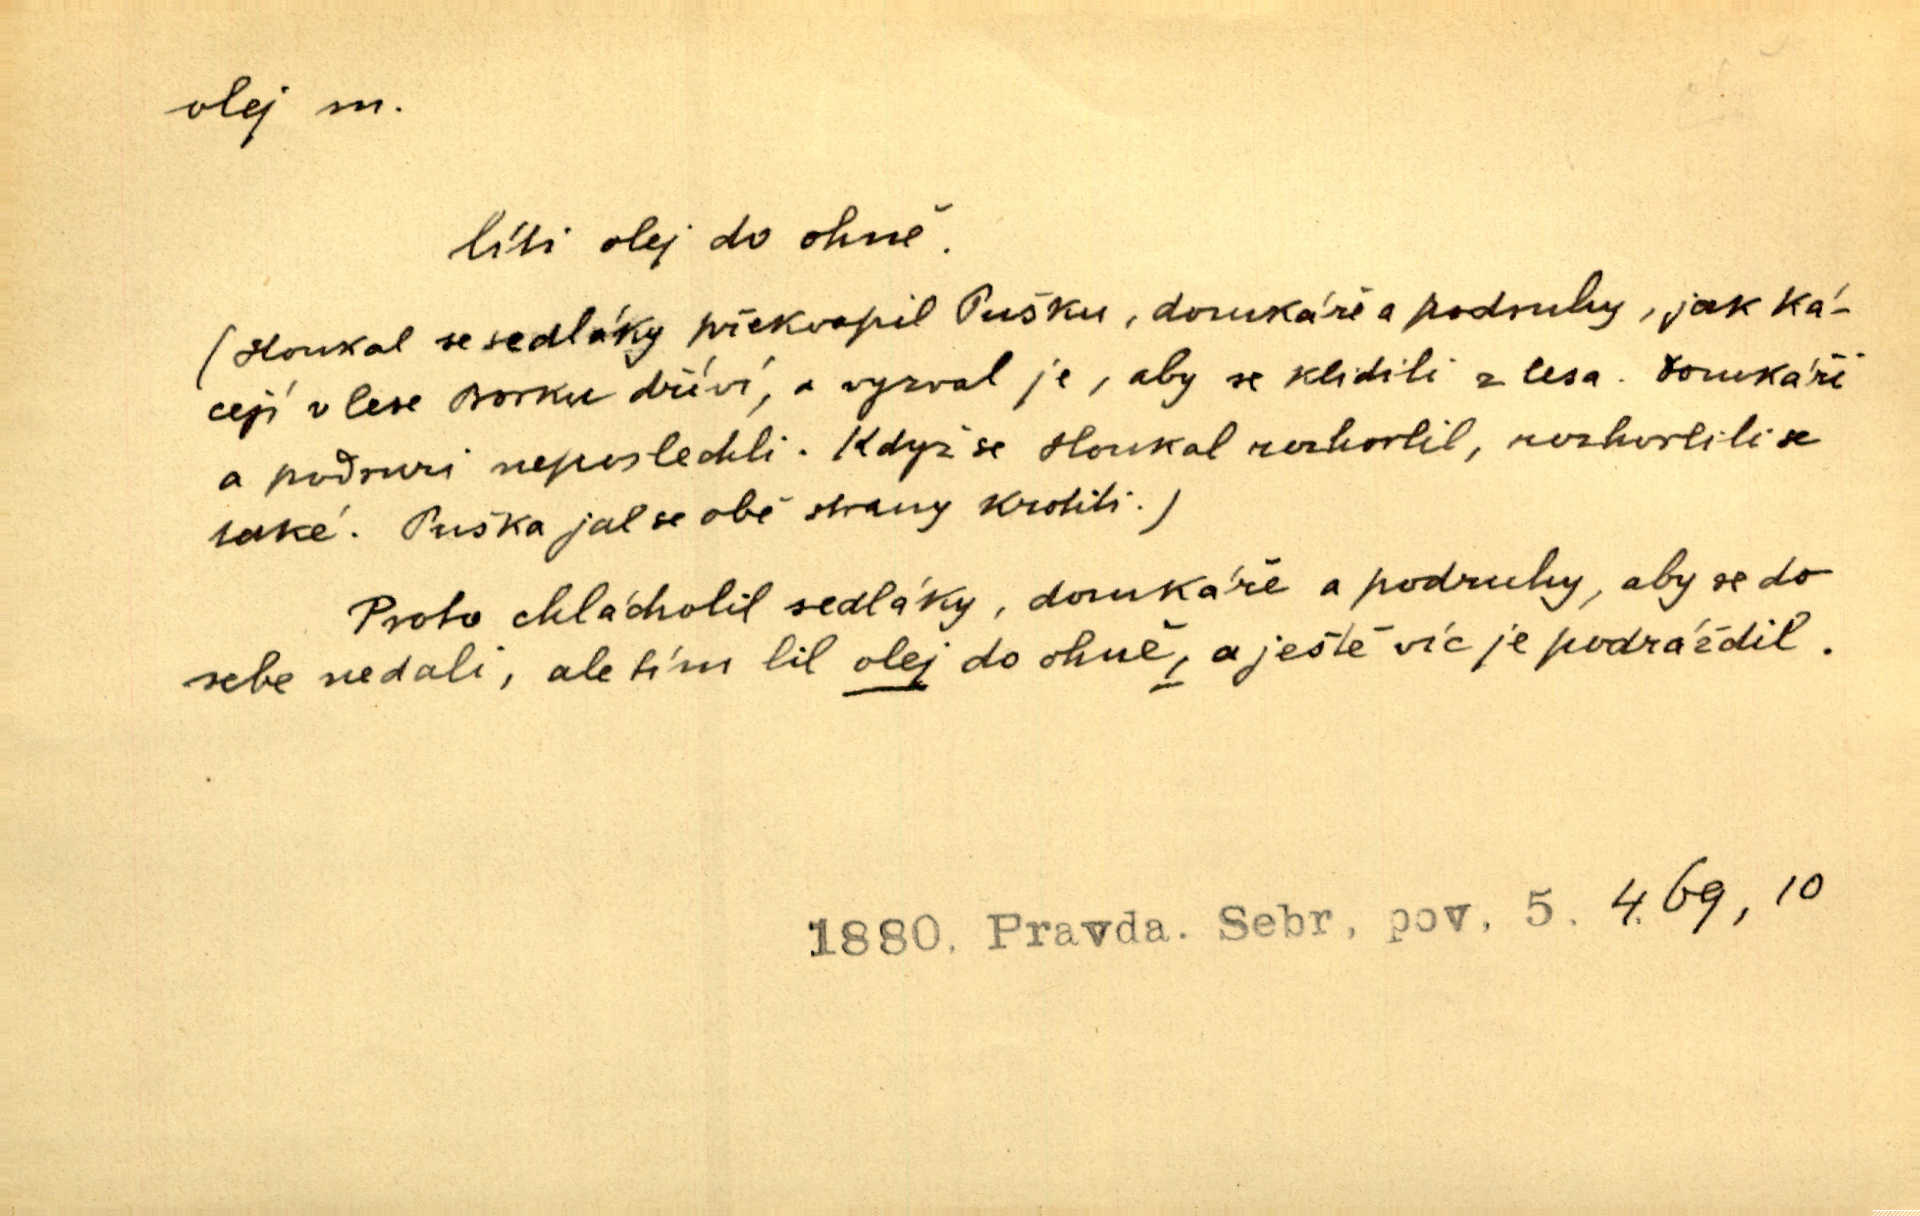 olej m.
líti olej do ohně.
(Houkal se sedláky překvapil Pušku, domkáře a podruhy, jak ká-
cejí v lese Borku dříví, a vyzval je, aby se klidili z lesa. Domkáři
a podruzi neposlechli. Když se Houkal rozhorlil, rozhorlili se
také. Puška jal se obě strany krotiti.)
Proto chlácholil sedláky, domkáře a podruhy, aby se do
sebe nedali, ale tím lil olej do ohně, a ještě víc je podráždil.
1880. Pravda. Sebr. pov. 5. 4. 69, 10